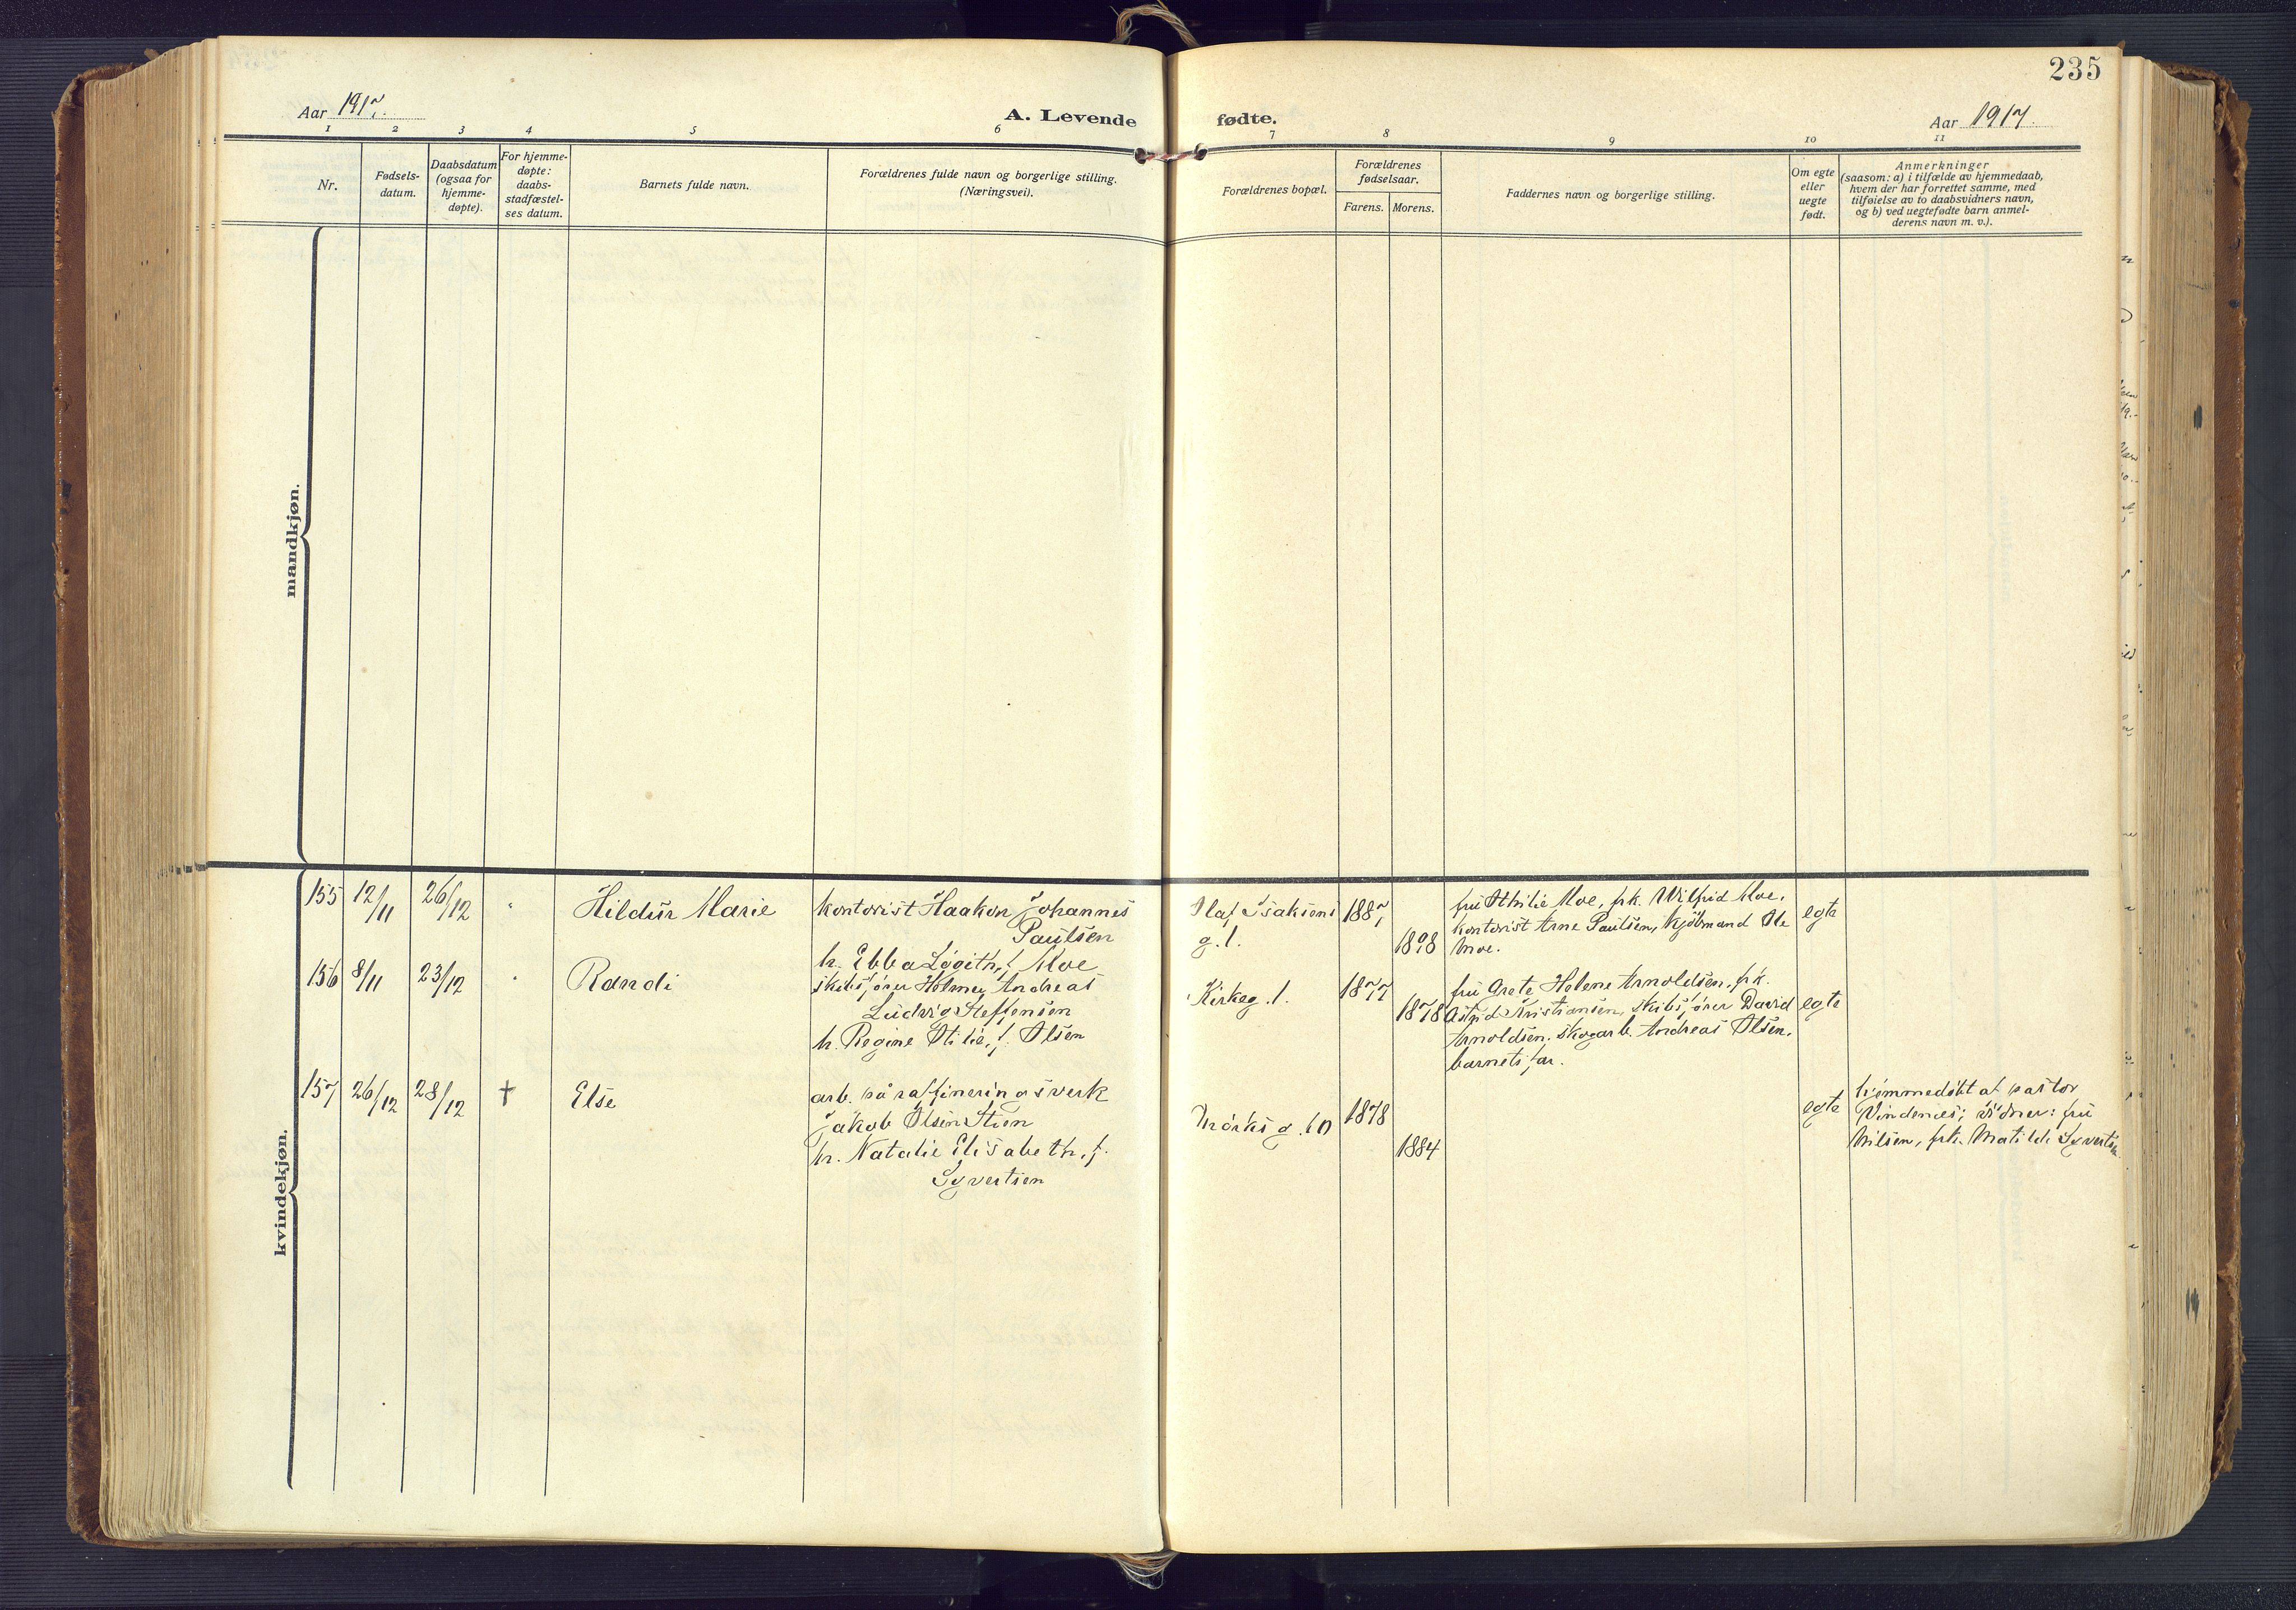 235
Aar 1917.
A. Levende fødte.
Aar 1917.
1 2 3 4 5 6 7 8 9 10 11
Nr.
Fødsels-
datum.
Daabsdatum
(ogsaa for
hjemme-
døpte).
For hjemme-
døpte:
daabs-
stadfæstel-
ses datum.
Barnets fulde navn.
Forældrenes fulde navn og borgerlige stilling.
(Næringsvei).
Forældrenes bopæl.
Forældrenes
fødselsaar.
Farens. Morens.
Faddernes navn og borgerlige stilling.
Om egte
eller
uegte
født.
Anmerkninger
(saasom: a) i tilfælde av hjemmedaab,
hvem der har forrettet samme, med
tilføielse av to daabsvidners navn,
og b) ved uegtefødte barn anmel-
derens navn m. v.).
mandkjøn.
kvindekjøn.
155 12/11 26/12 Hildur Marie
kontorist Haakon Johannes
Paulsen
h. Ebba f. Moe
Olaf Isaksens
g. 1.
1887
1898
fru Moe, frk. Wilfrid Moe,
kontorist Arne Paulsen, kjøbmand Ole
Moe.
egte
156 8/11 23/12 Randi
skibsfører Holmer Andreas
Ludvig Steffensen
h. Regine Otilie, f. Olsen
Kirkeg. 1.
1877
1878
fru Grete Helene Arnoldsen, frk.
Astrid Kristiansen, skibsfører David
Arnoldsen, skogarb. Andreas Olsen,
barnets far.
egte
157 26/12 28/12 † Else
arb. på raffineringsverk
Jakob Olsen Stien
h. Natalie Elisabeth, f.
Syvertsen
Mørks g. 10
1878
1884
egte
hjemmedøbt af pastor
Vindenes; vidner: fru
Nilsen, frk. Matilde Syvertsen